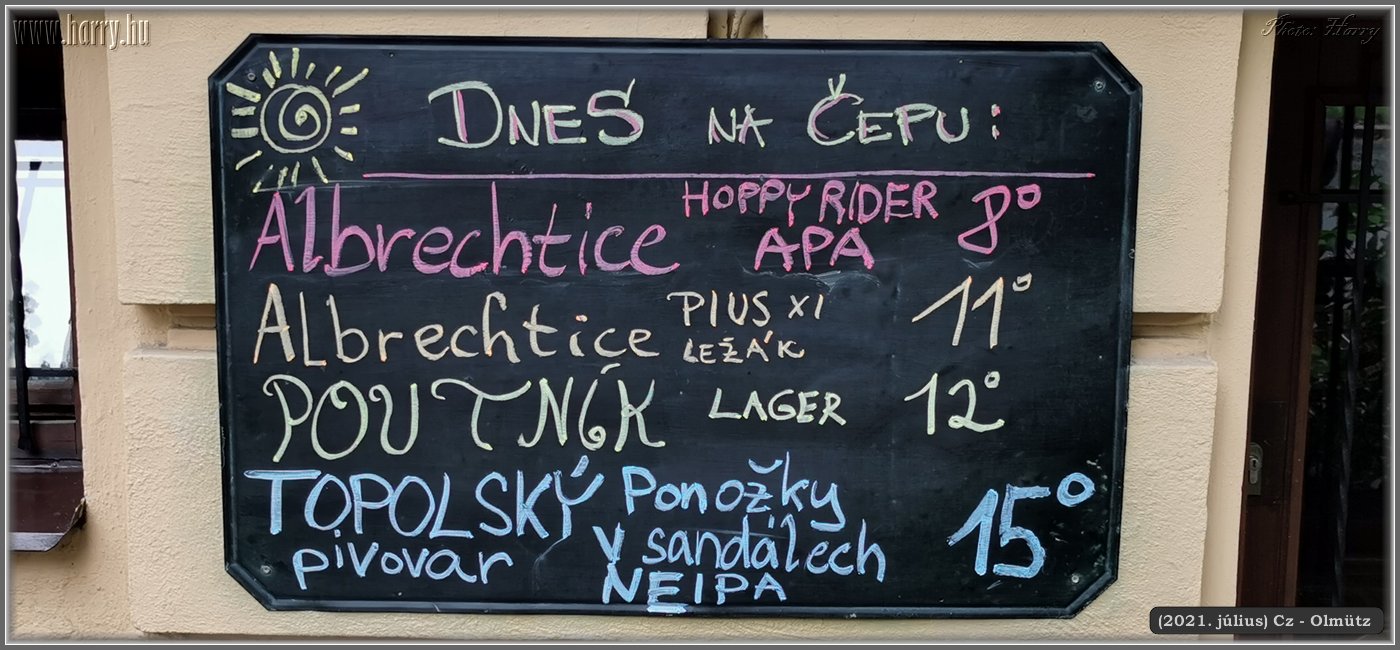 www.harry.hu
Photo: Harry
DNES NA ČEPU:
Albrechtice HOPPY RIDER APA 8°
ALbrechtice PIUS XI LEŽÁK 11°
POUTNÍK LAGER 12°
TOPOLSKÝ pivovar Ponožky v sandálech NEIPA 15°
(2021. július) Cz - Olmütz